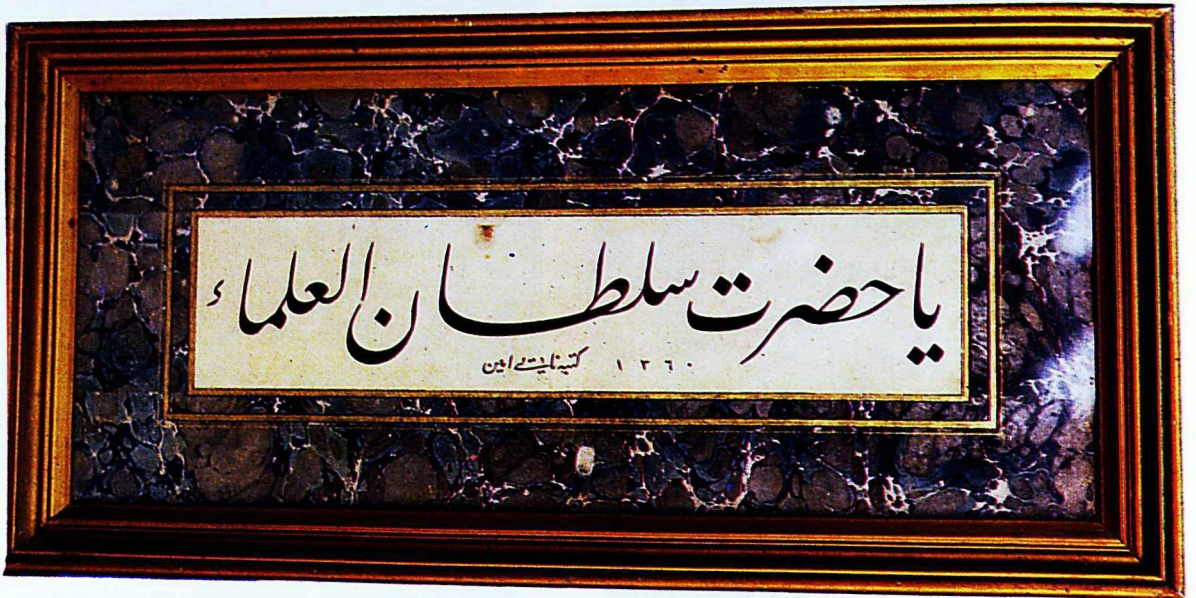 يا حضرت سلطان العلماء
كتبه نايت امين ١٣٦٠